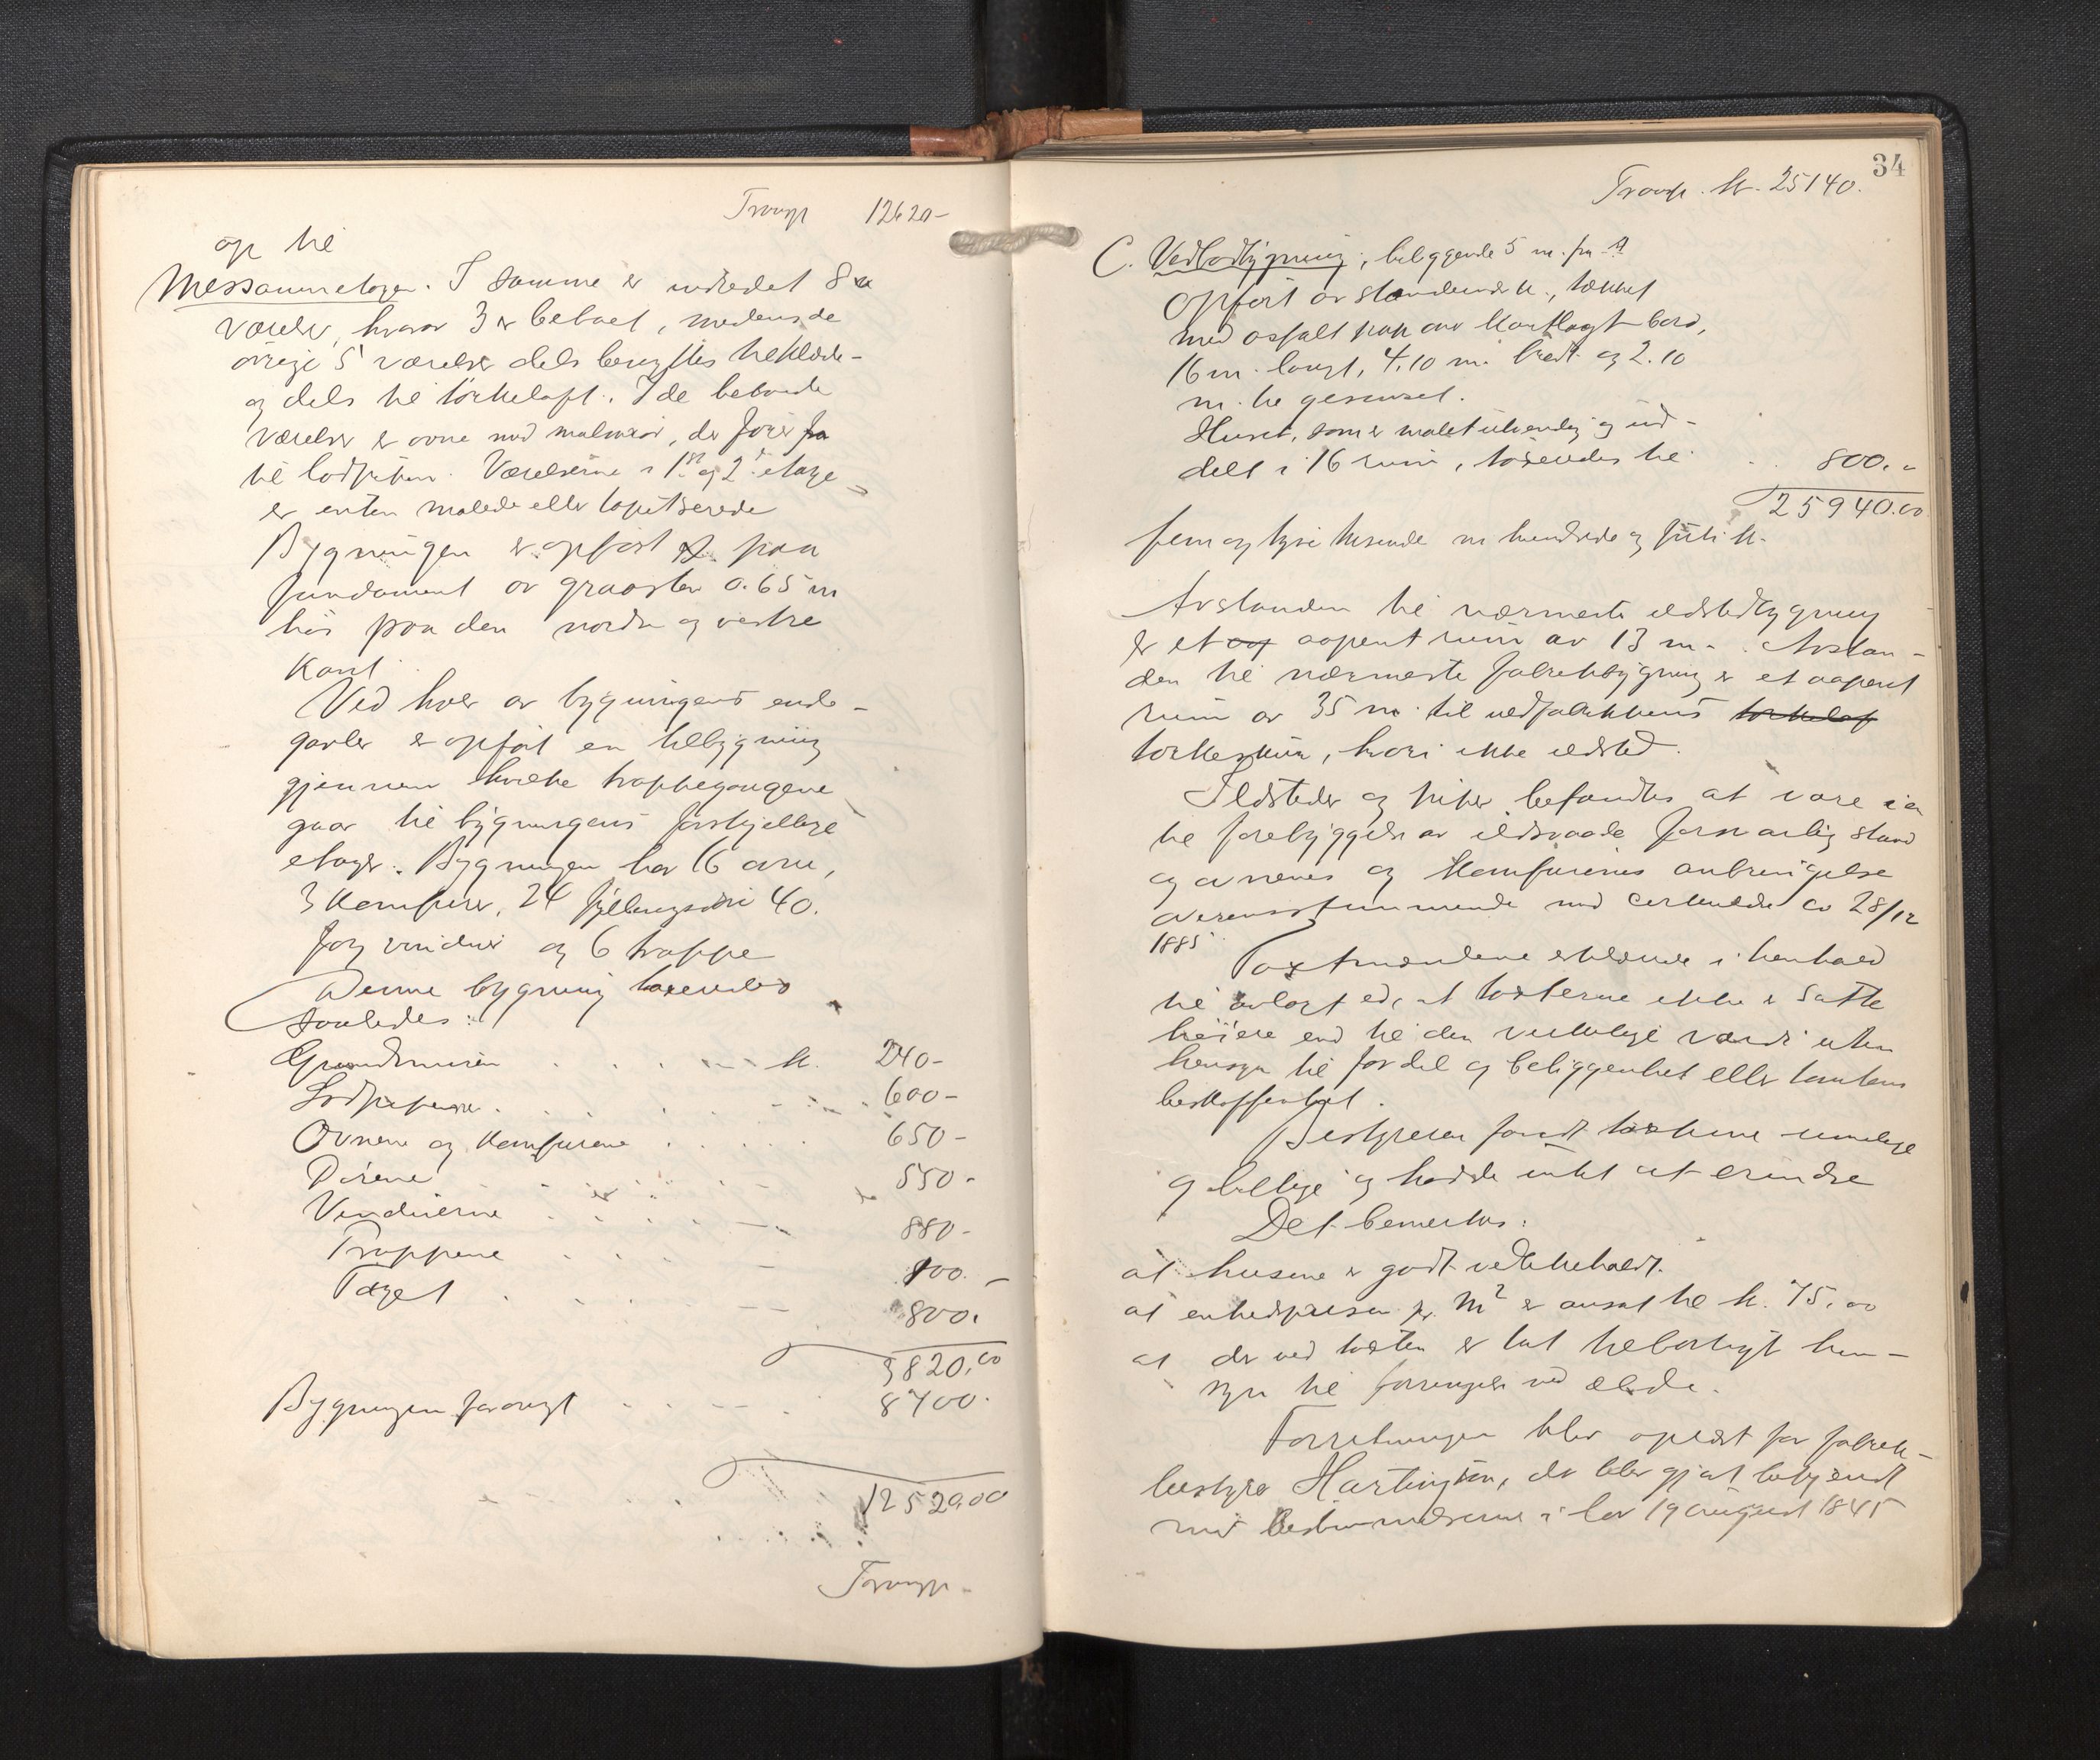 Transp 12620-
op til
Messaninetagen. I samme er indredet 8
værelser, hvorav 3 er beboet, medens de
øvrige 5 værelser dels benyttes til klæde-
og dels til törkeloft. I de beboede
værelser er ovne med malmrör, der förer
til lodpipen. Værelserne i 1st og 2. etage
er enten malede eller tapetserede
Bygningen er opført paa
fundament av graasten 0.65 m
höi paa den nordre og vestre
Kant.
Ved hver av bygningens ende-
gavler er opfört en tilbygning
gjennem hvilke trappegangene
gaar til bygningens forskjellige
etager. Bygningen har 16 ovne,
3 Komfurer, 24 fyllingsdöre 40.
fag vinduer og 6 trappe
Denne bygning taxeredes
saaledes:
Grundmuren . . . . . k. 240-
Lodpiperne . . . . . 600-
Ovnene og Komfurene . . . . . 650-
Dörene . . . . . 550-
Vinduerne . . . . . 880-
Trappene . . . . . 100.-
Taget . . . . . 800.
3820.00
Bygningen forøvrigt . . . . . 8700.
12520.00
Transp.
34
Transp. kr. 25140.
C. Vedbodbygning, beliggende 5 m. fra A
Opfört av standerverk, tækket
med asfalt pap over bord,
16 m. langt, 4.10 m. bredt og 2.10
m. til gesimset.
Huset, som er malet utvendig og ind-
delt i 16 rum, taxeredes til . . 800.-
25940.00
fem og tyve tusende ni hundrede ogförti k.
Avstanden til nærmeste ildstedbygning
er et aapent rum av 13 m. Avstan-
den til nærmeste fabrikbygning er et aapent
rum av 35 m. til uldfabrikkens törkeloft
törkeskur, hvori ikke ildsted.
Ildsteder og piper befandtes at være i en
til forebyggelse av ildsvaade forsvarlig stand
og ovnenes og Komfurenes anbringelse
overensstemmende med cirkulære av 28/12
1885
Taxtmændene erklærede i henhold
til avlagt ed, at taxterne ikke er satte
höiere end til den virkelige værdi uten
hensyn til fordel og beliggenhet eller tomtens
beskaffenhet.
Bestyreren fandt taxterne rimelige
og billige og hadde intet at erindre
Det bemerkes:
at husene er godt vedlikeholdt.
at enhedsprisen pr. m2 er ansat til k. 75.00
at der ved taxten er tat tilbörligt hen-
syn til forringelse ved ælde.
Forretningen blev oplæst for fabrik-
bestyrer, der blev gjort bekjendt
med bestemmelserne i lov 19 august 1845